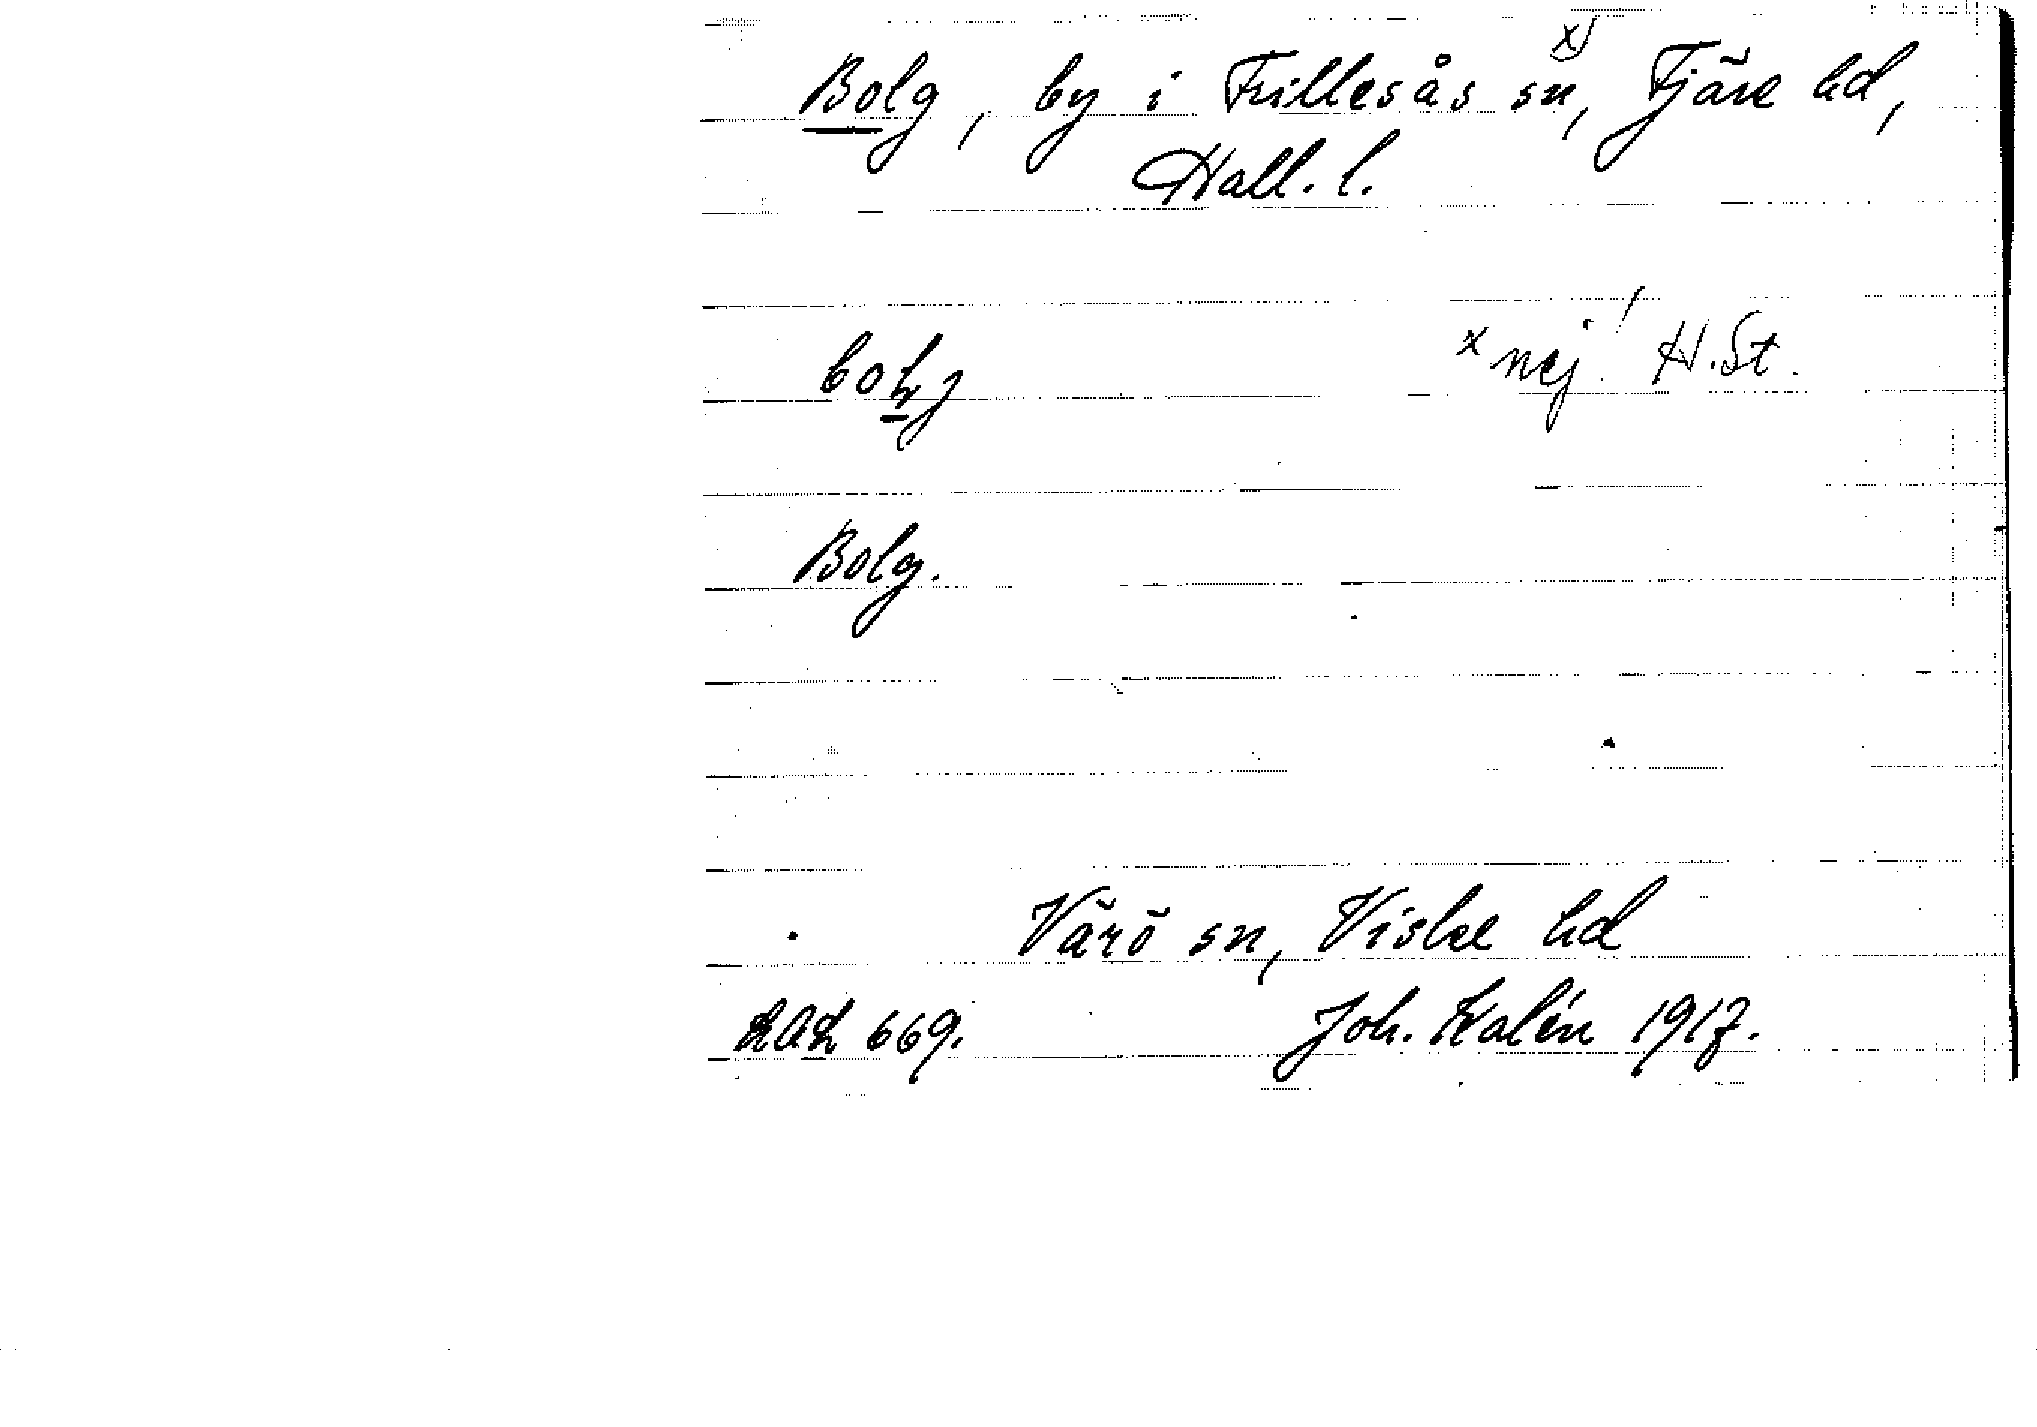 Bolg, by i Frillesås sn, x) Fjäre hd,
Hall. l.
x nej! H.St.
Bolg.
Värö sn, Viske hd
669. Joh. Kalén 1917.